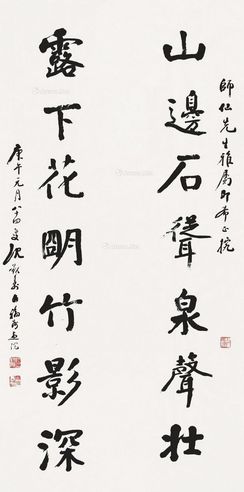 師仁先生雅屬即希正腕
山邊石聳泉聲壯
露下花明竹影深
庚午元月